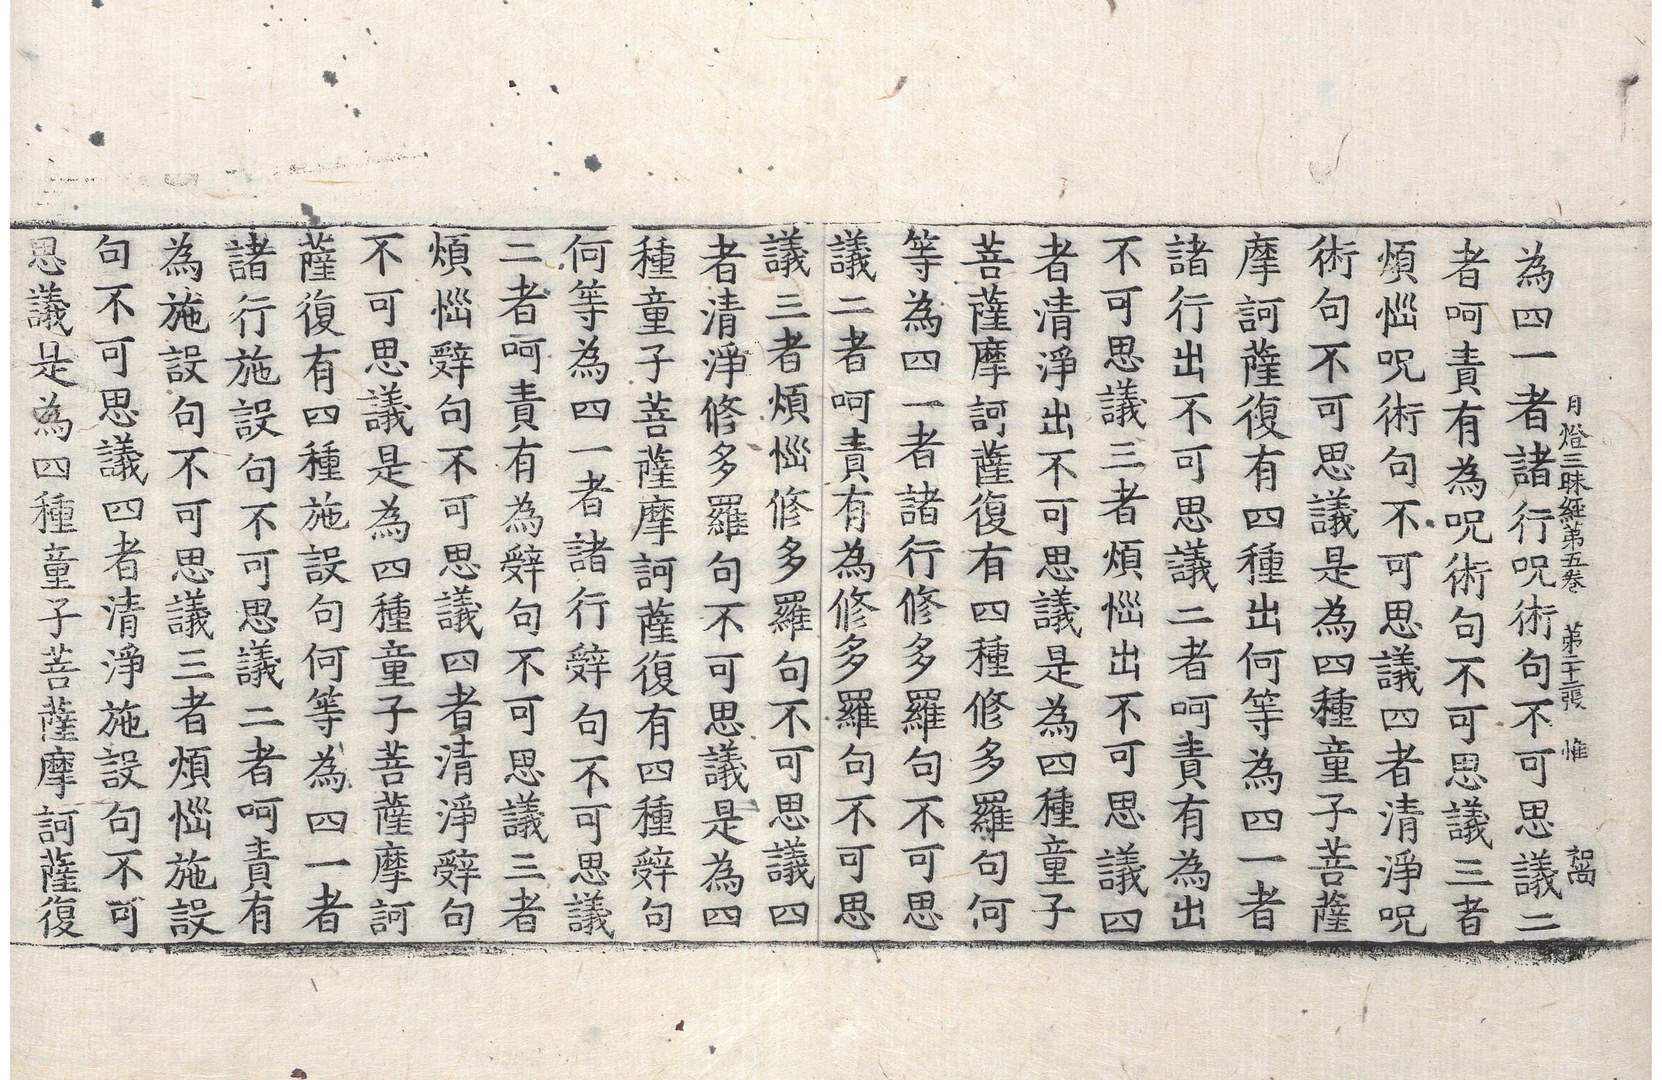 月燈三昧經第五卷 惟
為四一者諸行呪術句不可思議二
者呵責有為呪術句不可思議三者
煩惱呪術句不可思議四者清淨呪
術句不可思議是為四種童子菩薩
摩訶薩復有四種出何等為四一者
諸行出不可思議二者呵責有為出
不可思議三者煩惱出不可思議四
者清淨出不可思議是為四種童子
菩薩摩訶薩復有四種修多羅句何
等為四一者諸行修多羅句不可思
議二者呵責有為修多羅句不可思
議三者煩惱修多羅句不可思議四
者清淨修多羅句不可思議是為四
種童子菩薩摩訶薩復有四種辭句
何等為四一者諸行辭句不可思議
二者呵責有為辭句不可思議三者
煩惱辭句不可思議四者清淨辭句
不可思議是為四種童子菩薩摩訶
薩復有四種施設句何等為四一者
諸行施設句不可思議二者呵責有
為施設句不可思議三者煩惱施設
句不可思議四者清淨施設句不可
思議是為四種童子菩薩摩訶薩復